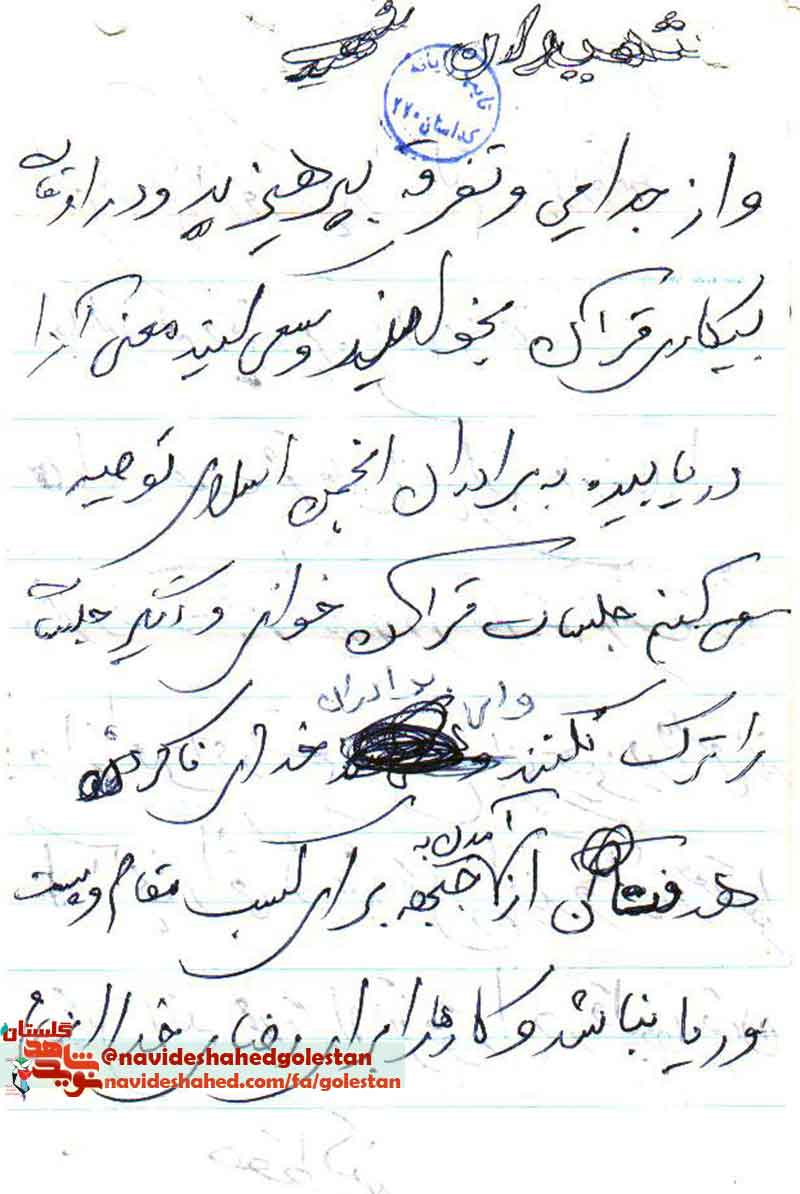 شهیدان
و از جدایی و تفرقه بپرهیزید و در اوقات
بیکاری قرآن بخوانید و سعی کنید معنی آنرا
دریابید. به برادران انجمن اسلامی توصیه
می کنم جلسات قرآن خوانی و دیگر جلسات
را ترک نکنند و ای برادران خدای ناکرده
هدفتان از آمدن به جبهه برای کسب مقام و پست
و ریا نباشد و کارها را برای رضای خدا
گلستان
نوید شاهد
@navideshahedgolestan
navideshahed.com/fa/golestan